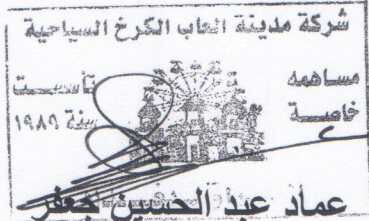 شركة مدينة العاب الكرخ السياحية
مساهمه
خاصـة
تأسـست
سنة ١٩٨٩
عماد عبد الحسين جعفر